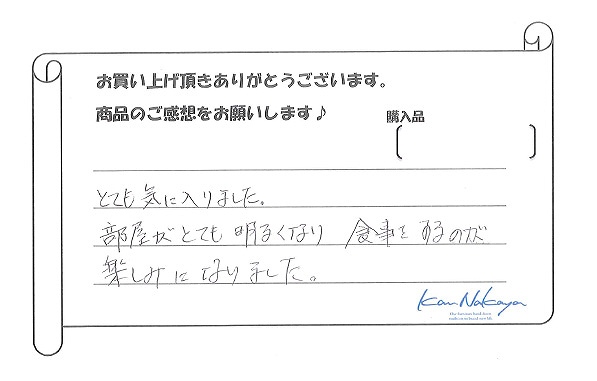 お買い上げ頂きありがとうございます。
商品のご感想をお願いします♪
購入品
とても気に入りました。
部屋がとても明るくなり 食事をするのが
楽しみになりました。
Kan Nakaya